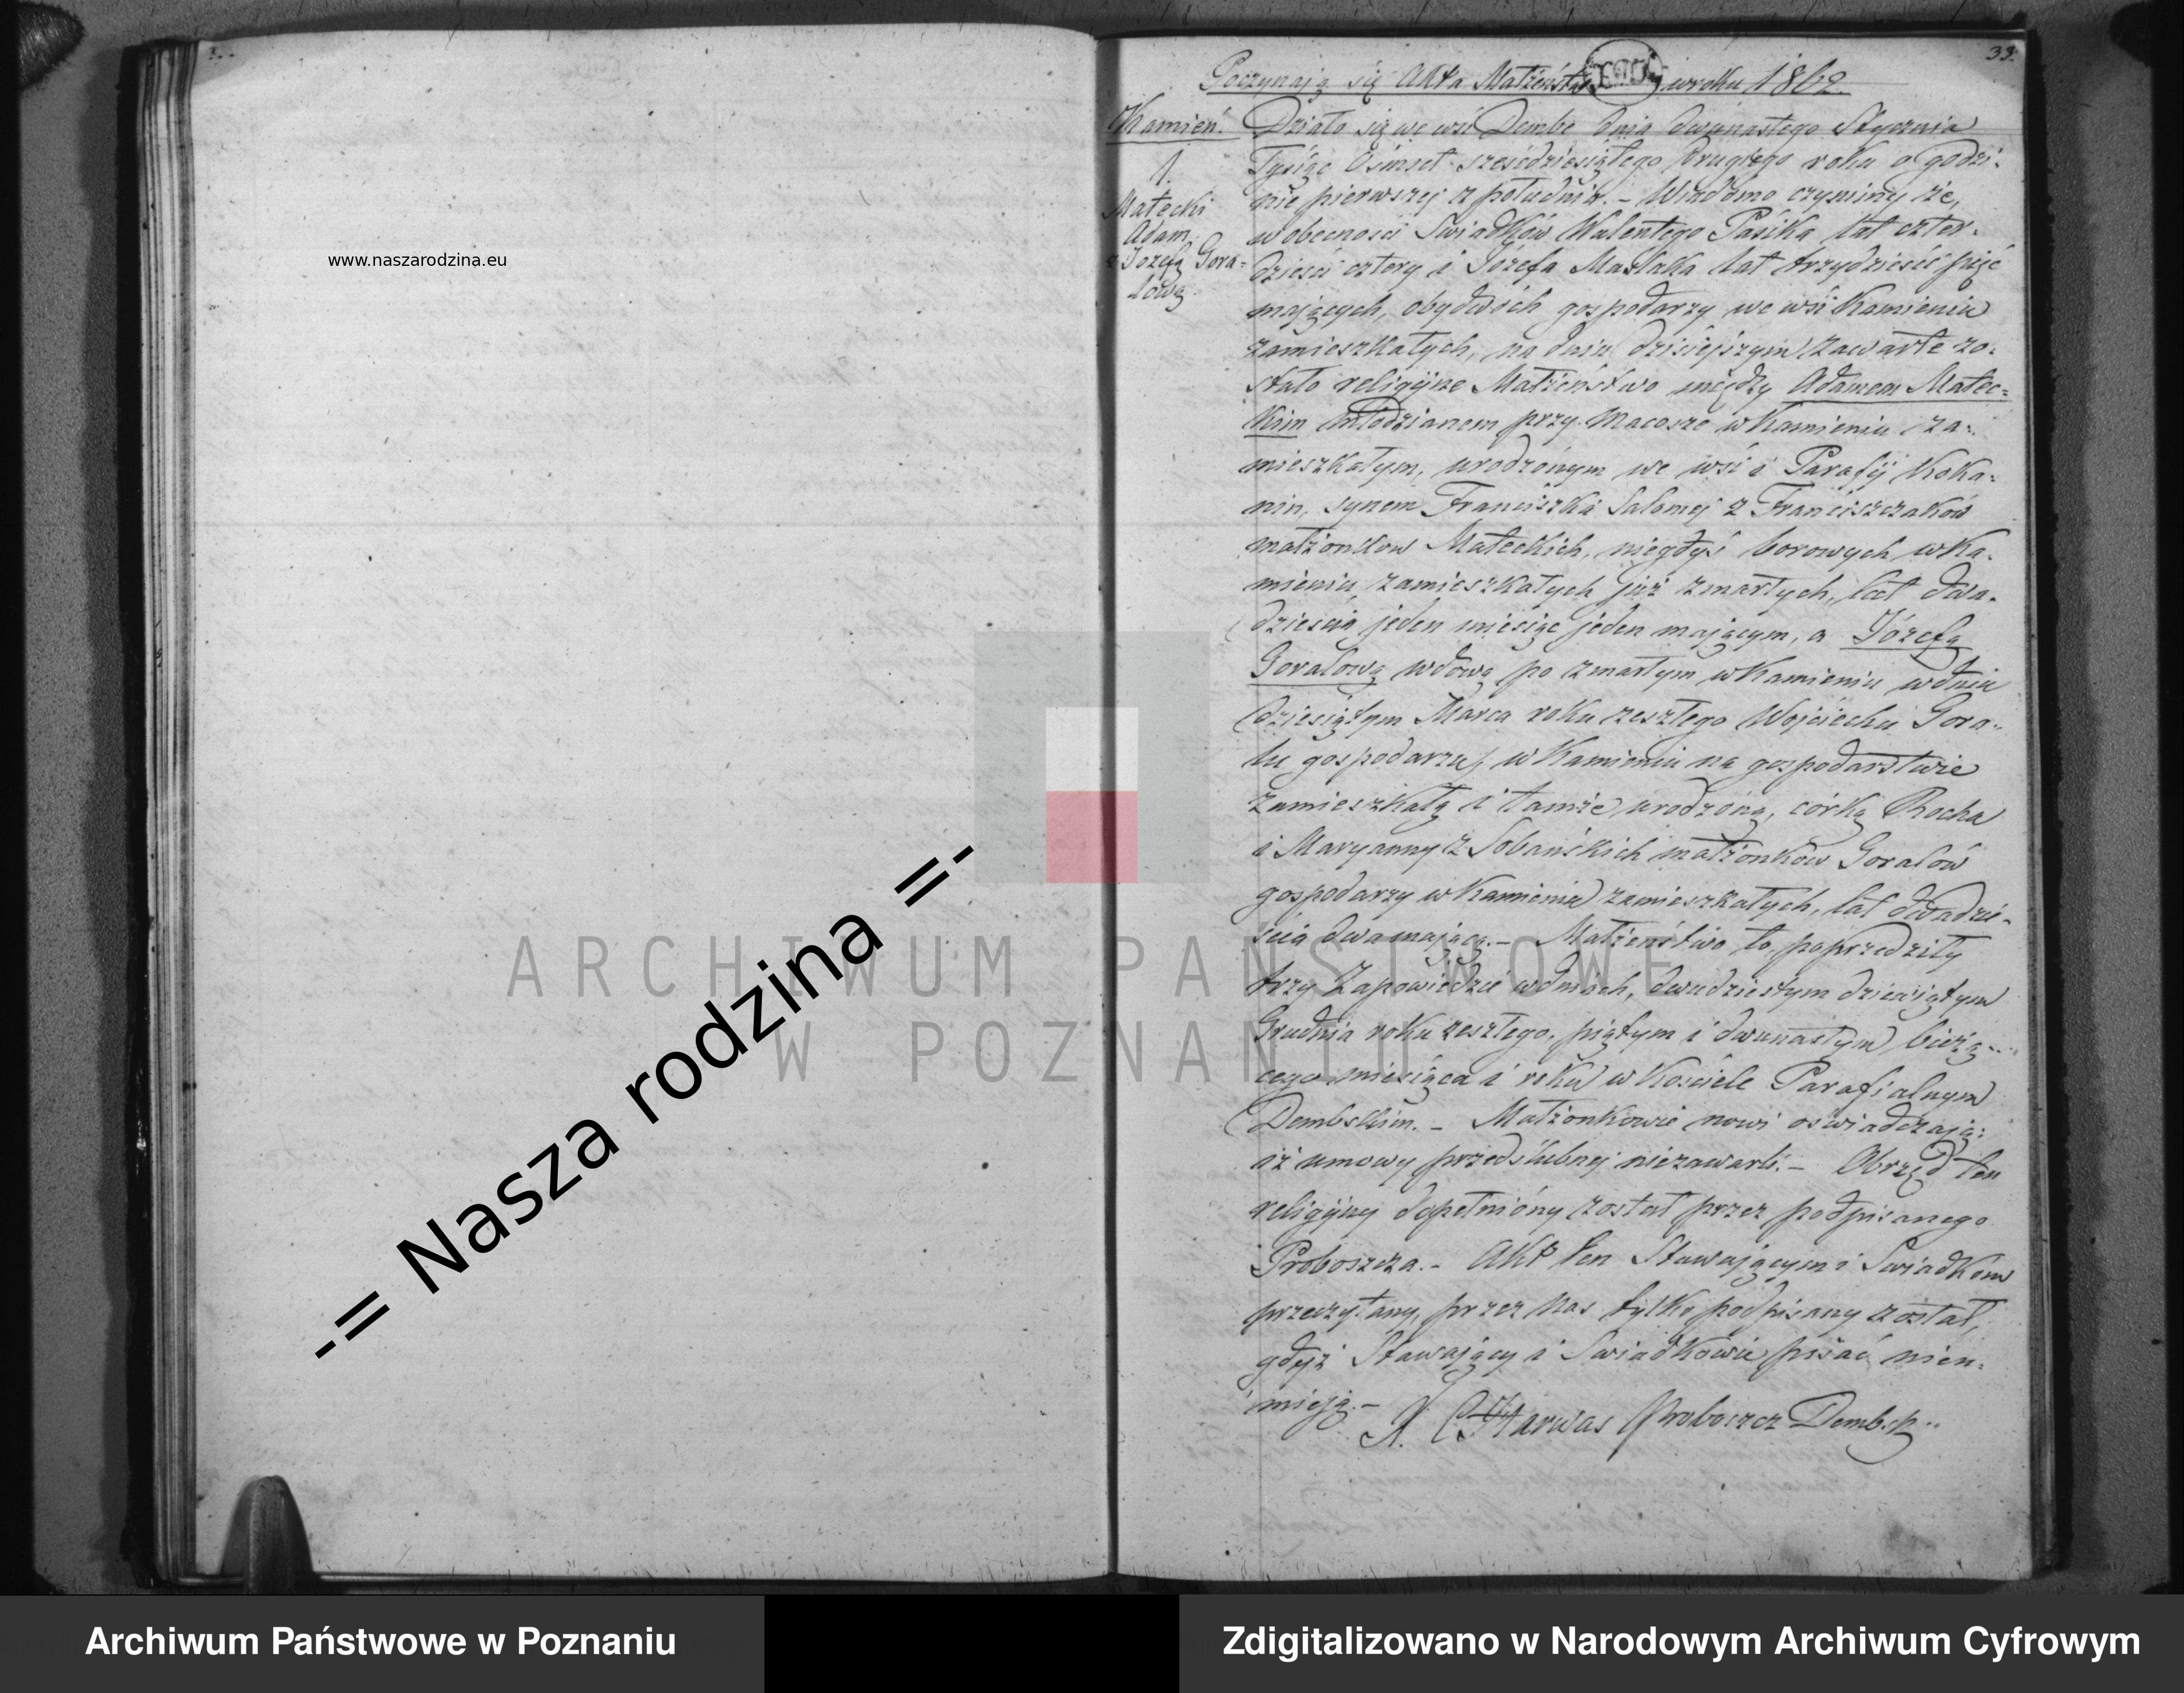 33.
Poczynają się Akta Małżeństw w roku 1862.
Kamień.
1.
Małecki
Adam
z Józefą Gora-
lową.
Działo się we wsi Dembe dnia dwunastego Stycznia
Tysiąc Ośmset sześćdziesiątego drugiego roku o godzi-
nie pierwszej z południa. – Wiadomo czyniemy że,
w obecności Świadków Walentego Pasika lat czter-
dzieści cztery i Józefa Maślaka lat trzydzieści pięć
mających, obydwóch gospodarzy we wsi Kamieniu
zamieszkałych, na dniu dzisiejszym zawarte zo-
stało religijne Małżeństwo między Adamem Małec-
kim młodzianem przy Macosze w Kamieniu za-
mieszkałym, urodzonym we wsi i Parafij Koka-
nin, synem Franciszka Salomej z Franciszczaków
małżonków Małeckich, niegdyś borowych w Ka-
mieniu zamieszkałych już zmarłych, lat dwa-
dzieścia jeden miesiąc jeden mającym, a Józefą
Goralową wdową po zmarłym w Kamieniu w dniu
dziesiątym Marca roku zeszłego Wojciechu Gora-
lu gospodarzu, w Kamieniu na gospodarstwie
zamieszkałą i tamże urodzoną, córką Rocha
i Maryanny z Sobańskich małżonków Goralów
gospodarzy w Kamieniu zamieszkałych, lat dwadzie-
ścia dwa mającą. – Małżeństwo to poprzedziły
trzy Zapowiedzie w dniach, dwudziestym dziewiątym
Grudnia roku zeszłego, piątym i dwunastym bieżą-
cego miesiąca i roku w Kościele Parafialnym
Dembskim. – Małżonkowie nowi oświadczają:
iż umowy przedślubnej niezawarli. – Obrzęd ten
religijny dopełniony został przez podpisanego
Proboszcza. – Akt ten Stawającym i Świadkom
przeczytany, przez Nas tylko podpisany został,
gdyż Stawający i Świadkowie pisać nieu-
mieją. –
X. Harwas Proboszcz Dembsk..
www.naszarodzina.eu
-= Nasza rodzina =-
ARCHIWUM PAŃSTWOWE
W POZNANIU
Archiwum Państwowe w Poznaniu
Zdigitalizowano w Narodowym Archiwum Cyfrowym